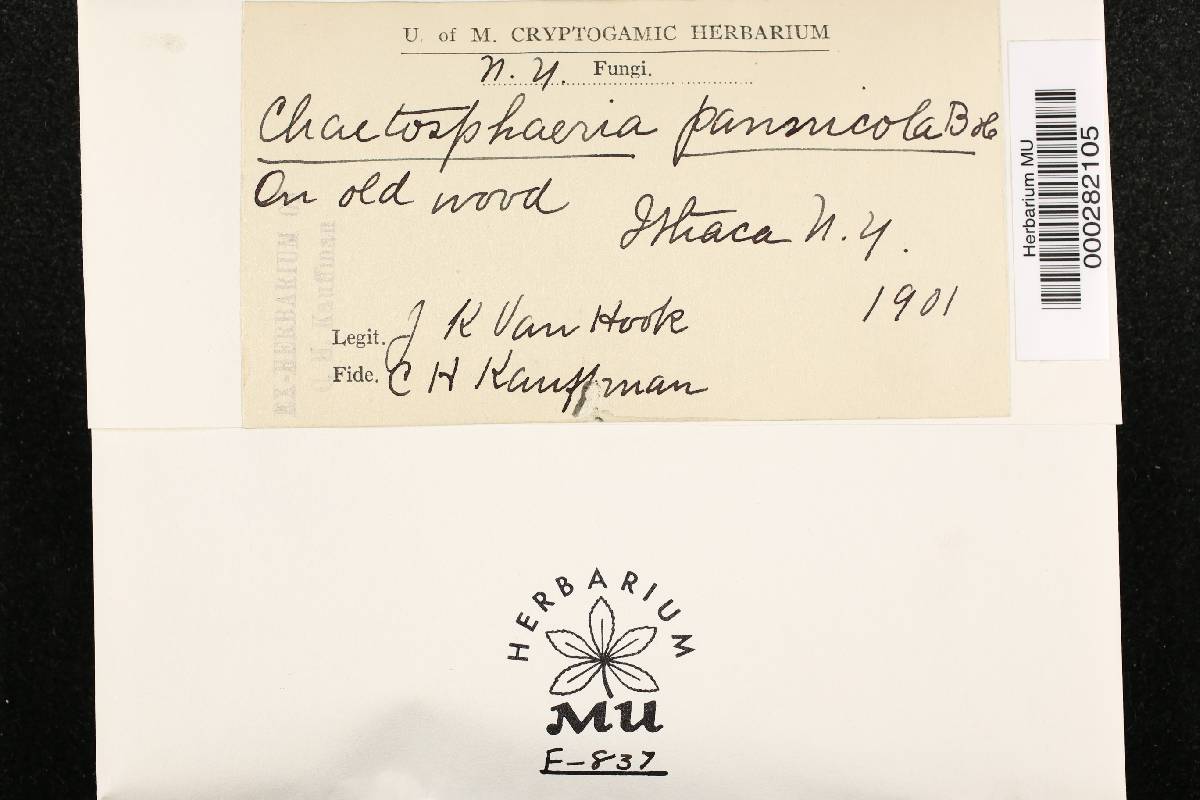 U. of M. CRYPTOGAMIC HERBARIUM
N. Y. Fungi.
Chaetosphaeria pannicola B &c
On old wood
Ithaca N. Y.
1901
Legit. J K Van Hook
Fide. C H Kauffman
EX-HERBARIUM
C. H. Kauffman
Herbarium MU
000282105
HERBARIUM
MU
F-837